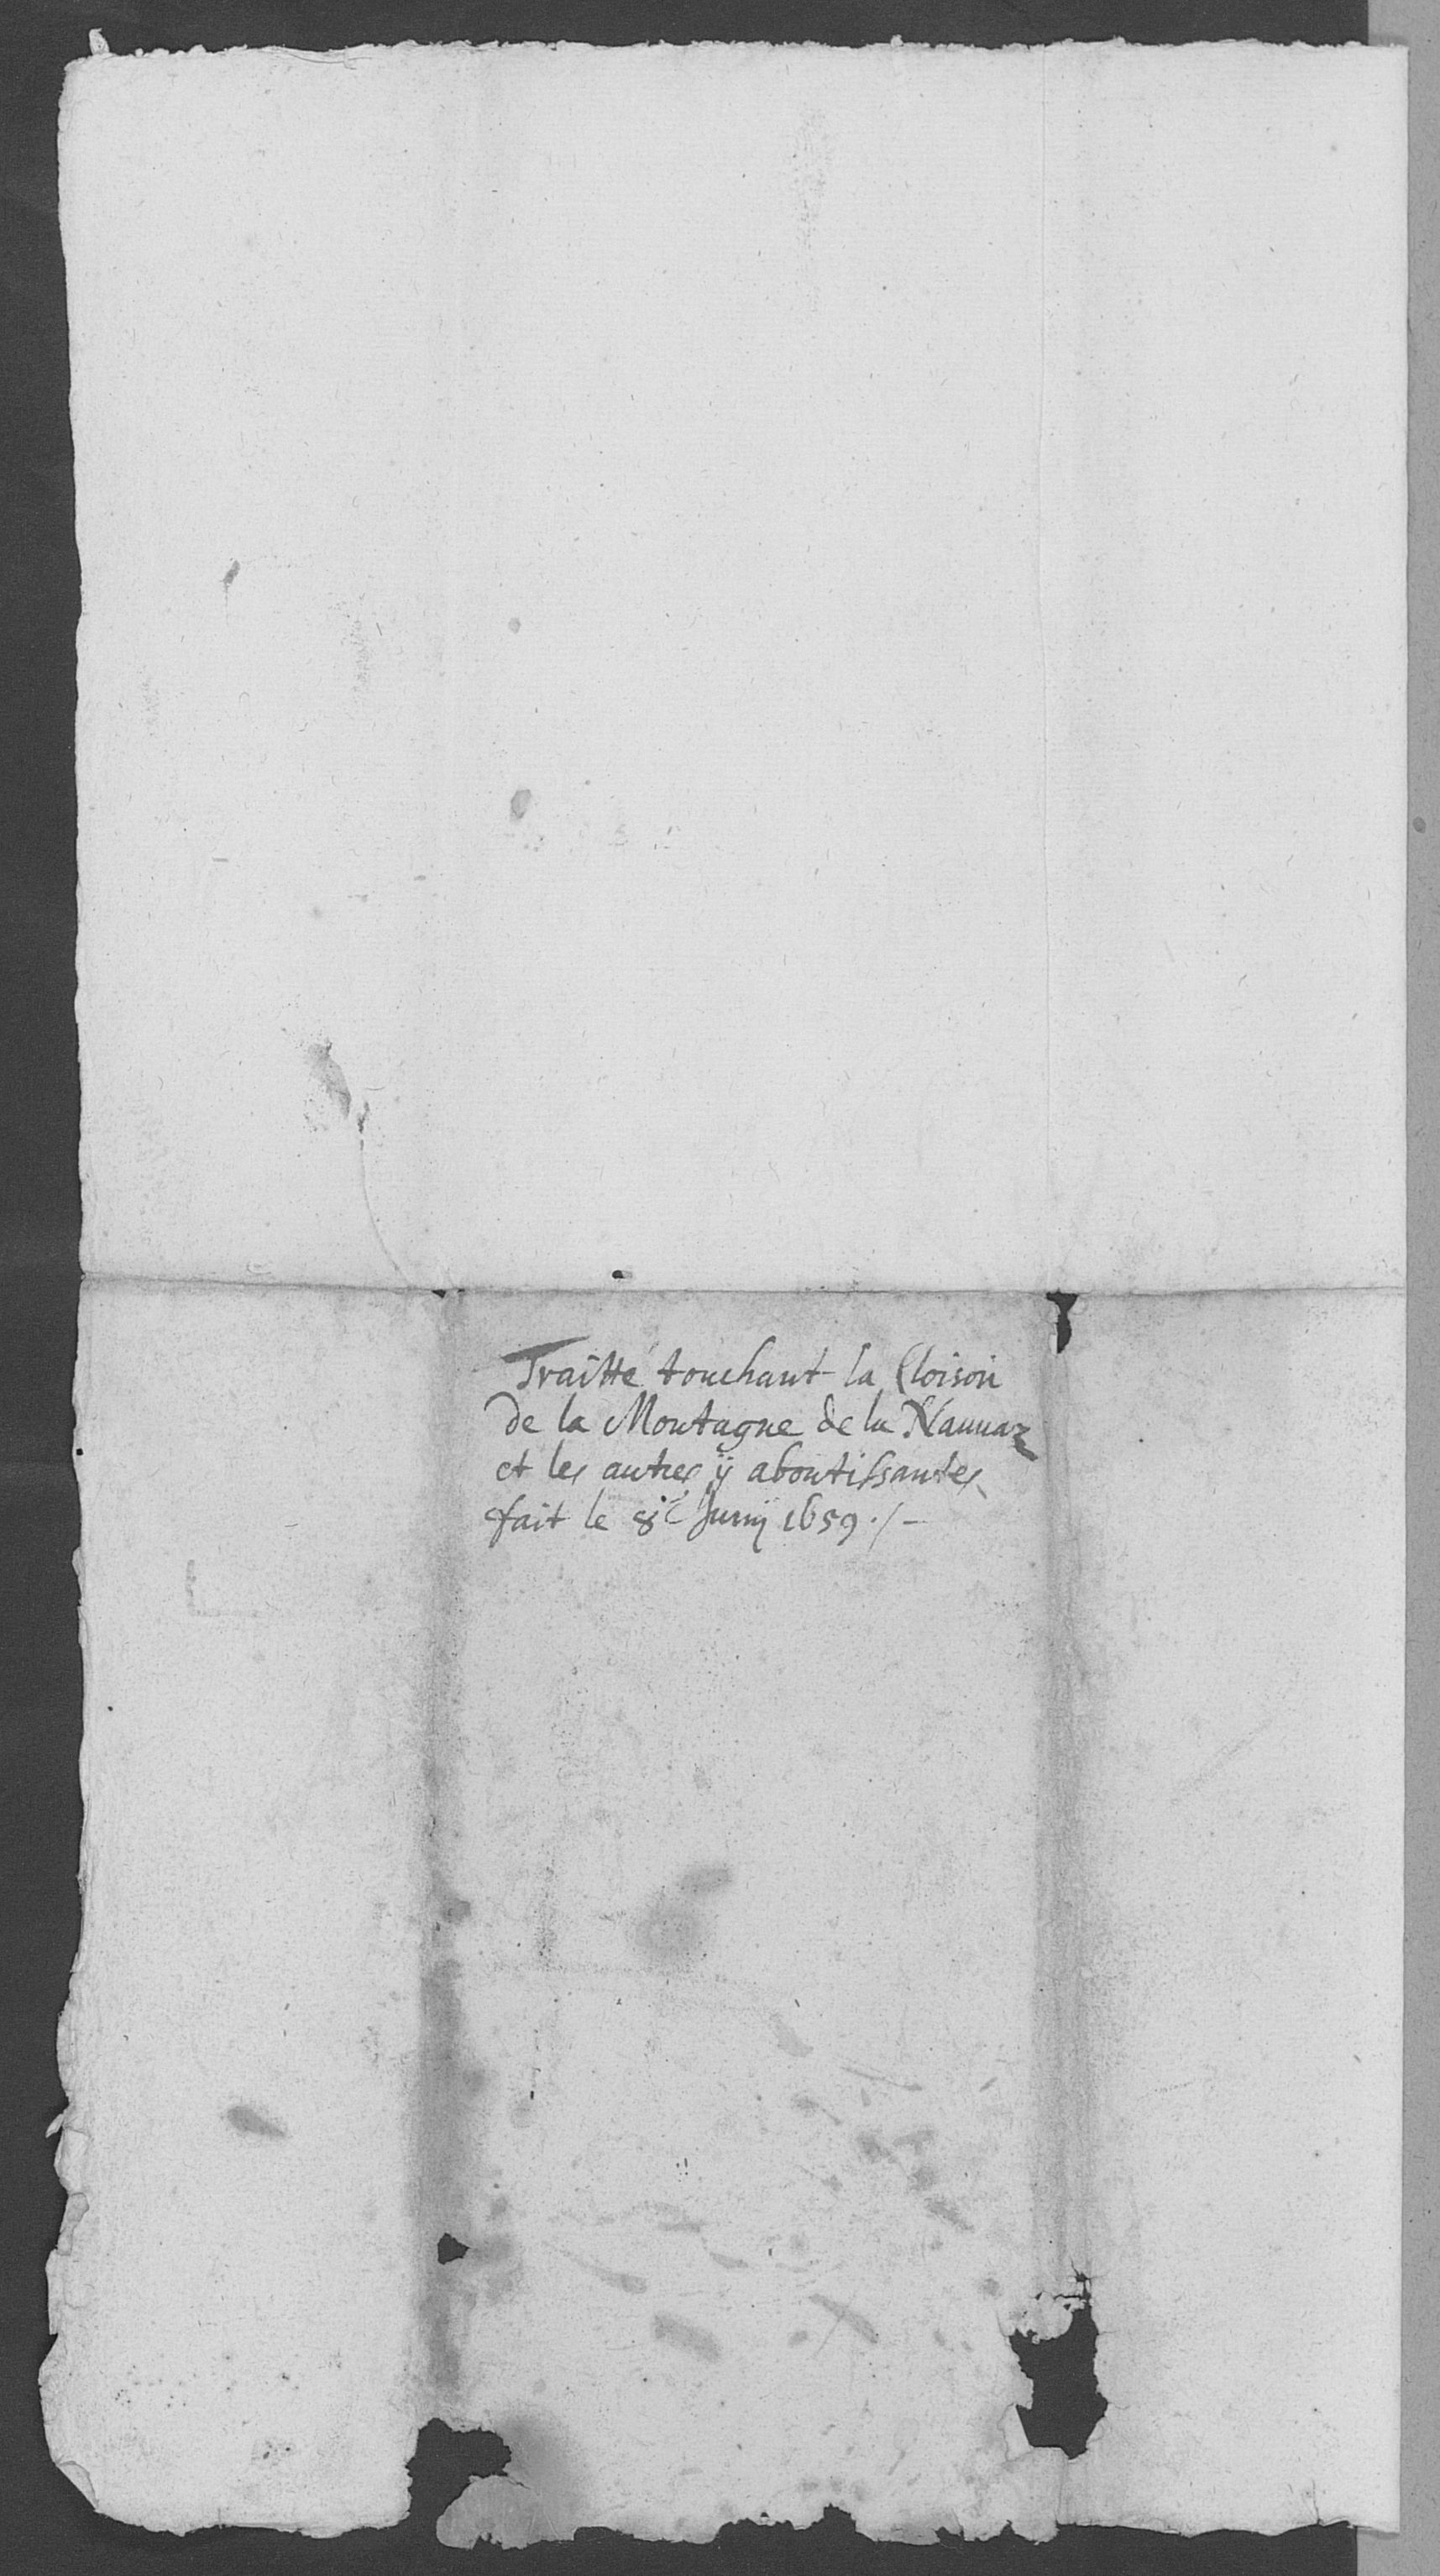 Traitté touchant la Cloison
de la Montagne de la Nauuaz
et les autres ÿ aboutissantes
fait le 8e Junij 1659 ./-